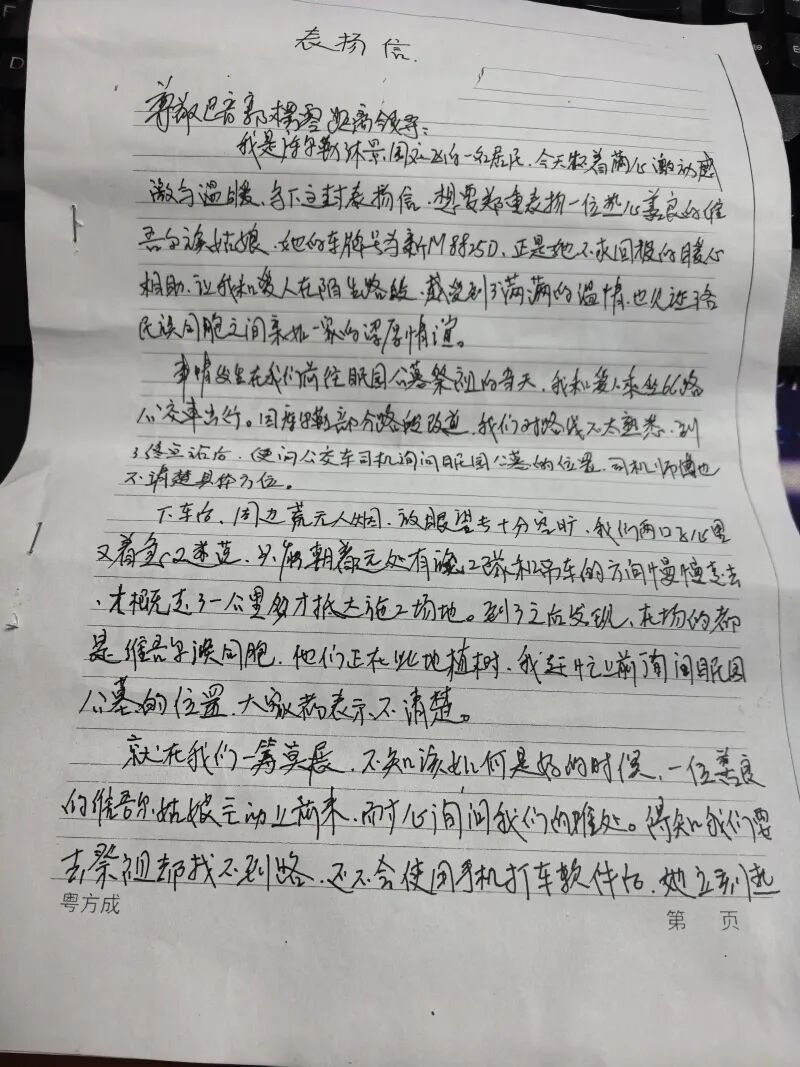 表扬信.
尊敬巴音郭楞零距离领导:
我是库尔勒沐景园社区的一名居民,今天怀着满心激动感
激与温暖,写下这封表扬信,想要郑重表扬一位热心善良的维
吾尔族姑娘,她的车牌号为新M8825D,正是她不求回报的暖心
相助,让我和爱人在陌生路段,感受到了满满的温情,也见证了各
民族同胞之间亲如一家的深厚情谊。
事情发生在我们前往眠园公墓祭祖的当天,我和爱人乘坐66路
公交车出行。因库尔勒部分路段改道,我们对路线不太熟悉,到
了停立站台,便向公交车司机询问眠园公墓的位置,司机师傅也
不清楚具体方位。
下车后,周边荒无人烟,放眼望去十分空旷,我们两口子心里
又着急又迷茫,只能朝着远处有施工队和吊车的方向慢慢走去
,大概走了一公里多才抵达施工场地。到了之后发现,在场的都
是维吾尔族同胞,他们正在此地植树,我赶忙上前询问眠园
公墓的位置,大家都表示不清楚。
就在我们一筹莫展,不知该如何是好的时候,一位善良
的维吾尔姑娘主动上前来,耐心询问我们的难处。得知我们要
去祭祖却找不到路,还不会使用手机打车软件后,她立刻热
粤方成
第 页